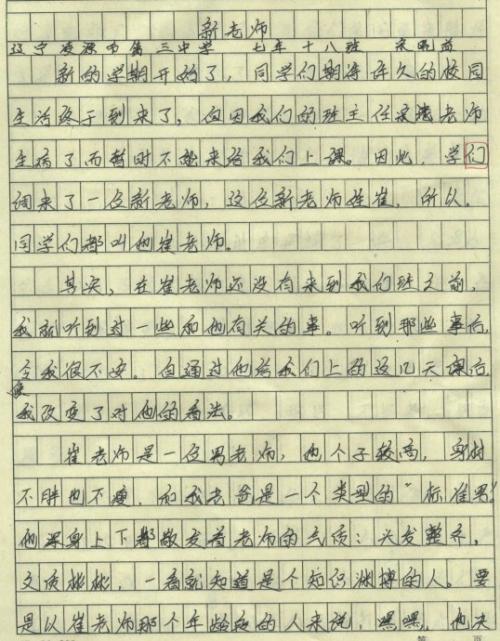 新老师
辽宁凌源市第三中学 七年十八班 宋明益
新的学期开始了，同学们期待许久的校园
生活终于到来了，但因我们的班主任老师
生病了而暂时不能来给我们上课。因此，学们
调来了一位新老师，这位新老师姓崔，所以，
同学们都叫他崔老师。
其实，在崔老师还没有来到我们班之前，
我就听到过一些和他有关的事。听到那些事后，
令我很不安。但通过他给我们上的这几天课后
使
我改变了对他的看法。
崔老师是一位男老师，他个子较高，身材
不胖也不瘦，和我老爸是一个类型的“标准男”
他浑身上下都散发着老师的气质：头发整齐，
文质彬彬，一看就知道是个知识渊博的人。要
是以崔老师那个年龄段的人来说，嘿嘿，他